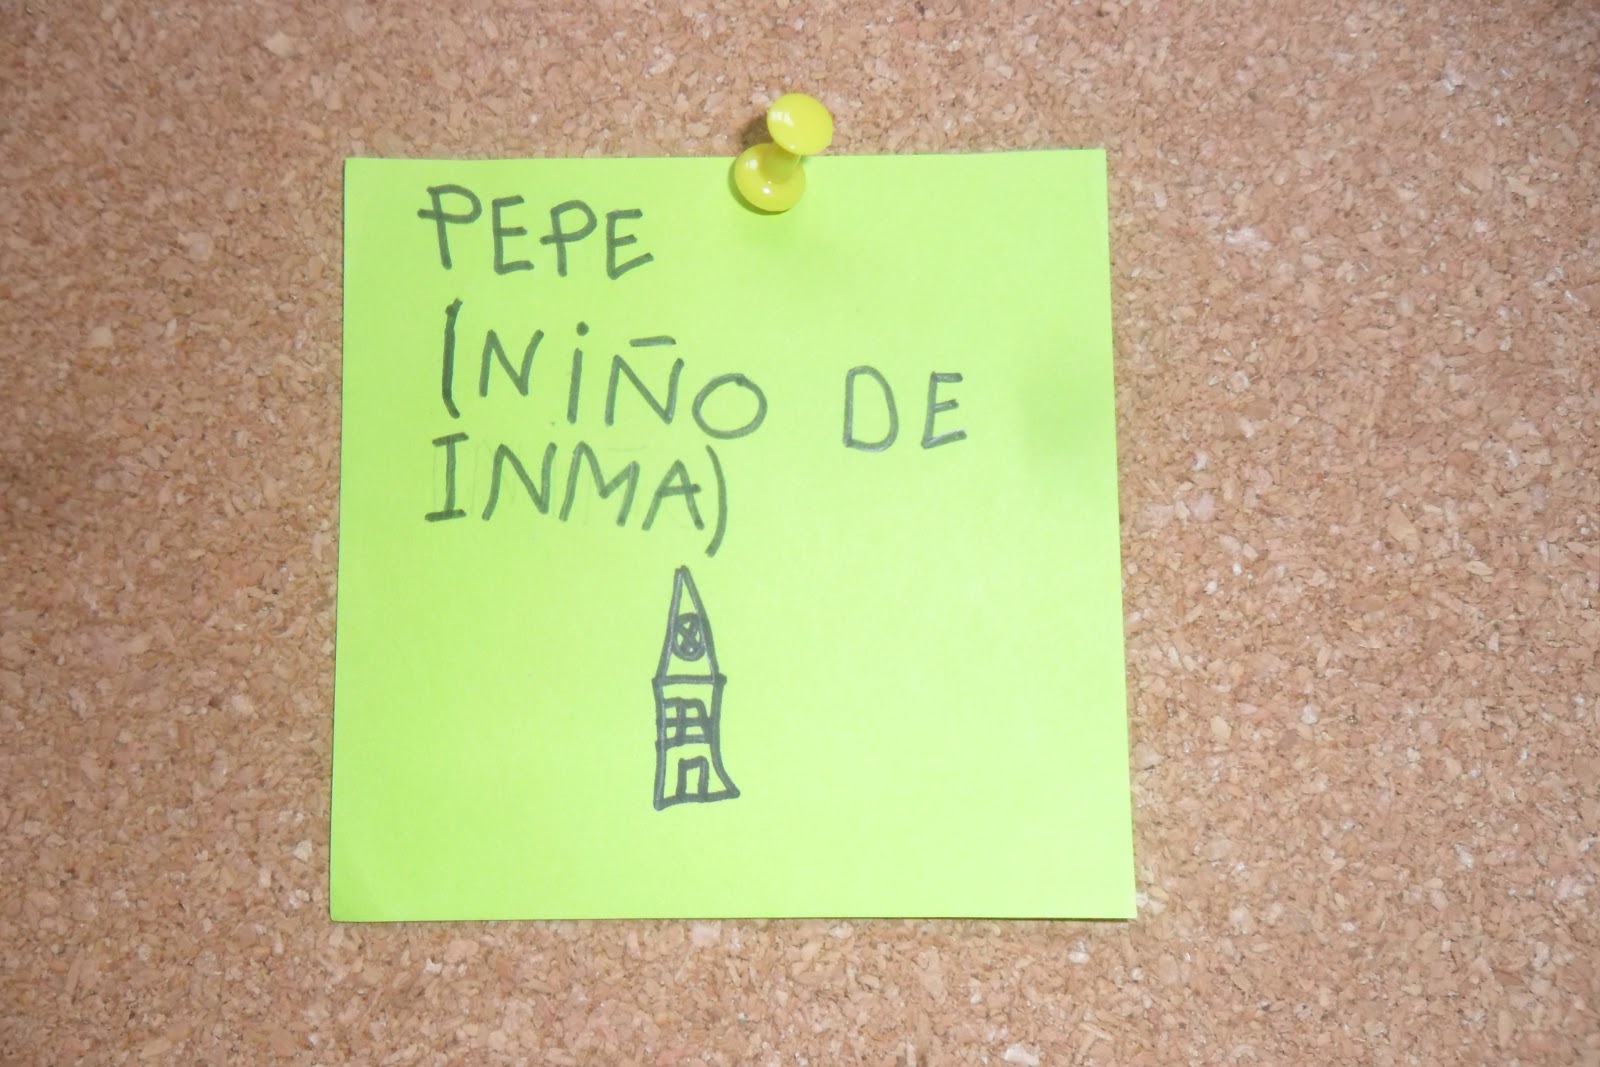 PEPE
(NIÑO DE
INMA)